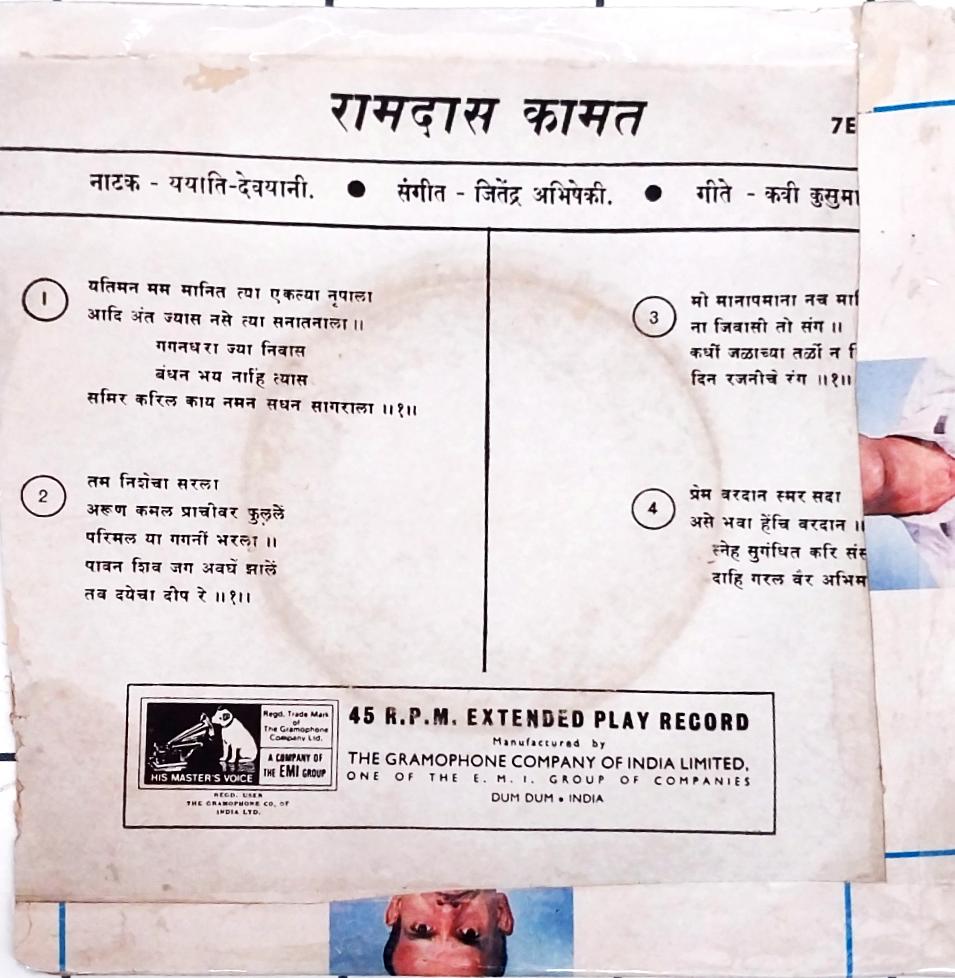 रामदास कामत
7E
नाटक - ययाति-देवयानी. ● संगीत - जितेंद्र अभिषेकी. ● गीते - कवी कुसुमा
1
यतिमन मम मानित त्या एकल्या नृपाला
आदि अंत ज्यास नसे त्या सनातनाला ॥
गगनधरा ज्या निवास
बंधन भय नाहि त्यास
समिर करिल काय नमन सधन सागराला ॥१॥
2
तम निशेचा सरला
अरूण कमल प्राचीवर फुललें
परिमल या गगनीं भरला ॥
पावन शिव जग अवघें झालें
तव दयेचा दीप रे ॥१॥
3
मी मानापमाना नच मा
ना जिवासी तो संग ॥
कधीं जळाच्या तळीं न
दिन रजनीचे रंग ॥१॥
4
प्रेम वरदान स्मर सदा
असे भवा हेंचि वरदान ॥
स्नेह सुगंधित करि संस
दाहि गरल वैर अभिम
HIS MASTER'S VOICE
Regd. Trade Mark
of
The Gramophone
Company Ltd.
A COMPANY OF
THE EMI GROUP
REGD. USER
THE GRAMOPHONE CO. OF
INDIA LTD.
45 R.P.M. EXTENDED PLAY RECORD
Manufactured by
THE GRAMOPHONE COMPANY OF INDIA LIMITED,
ONE OF THE E. M. I. GROUP OF COMPANIES
DUM DUM • INDIA